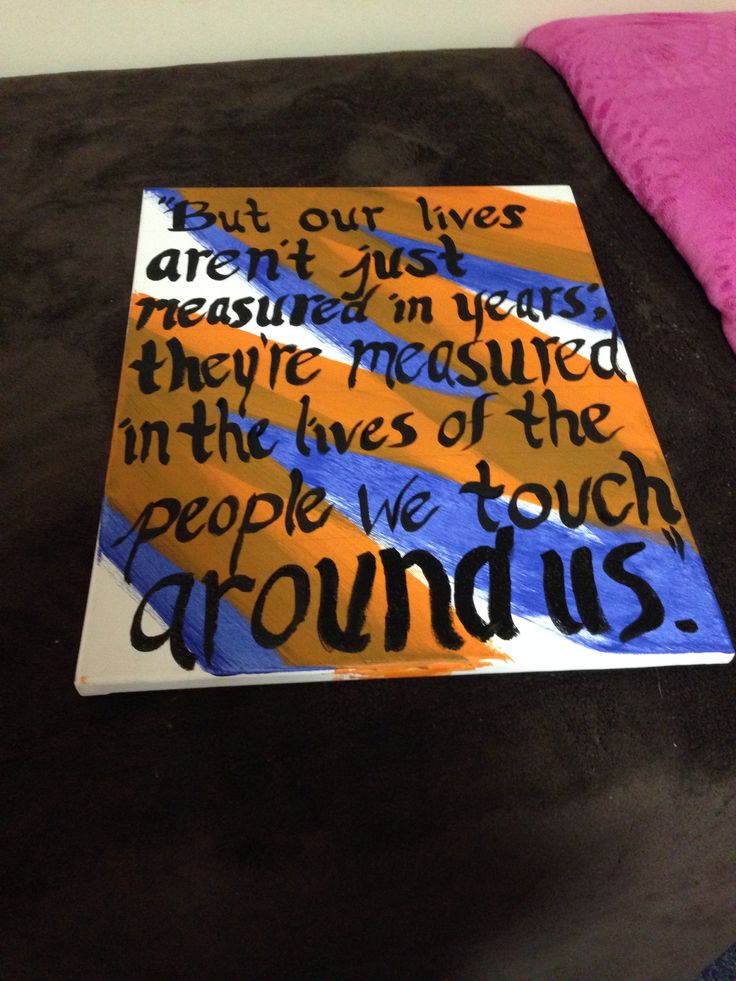 "But our lives
aren't just
measured in years;
they're measured
in the lives of the
people we touch
around us."